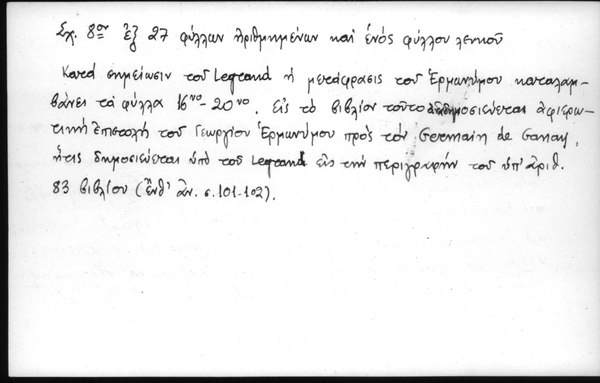 Σχ. 8ον ἐξ 27 φύλλων ἠριθμημένων καὶ ἑνὸς φύλλου λευκοῦ
Κατὰ σημείωσιν τοῦ Legrand ἡ μετάφρασις τοῦ Ἑρμωνύμου καταλαμ-
βάνει τὰ φύλλα 16νο - 20νο. Εἰς τὸ βιβλίον τοῦτο δημοσιεύεται ἀφιερω-
τικὴ ἐπιστολὴ τοῦ Γεωργίου Ἑρμωνύμου πρὸς τὸν Germain de Ganay,
ἥτις δημοσιεύεται ὑπὸ τοῦ Legrand εἰς τὴν περιγραφὴν τοῦ ὑπ' ἀριθ.
83 βιβλίου (ἔνθ' ἀν. σ. 101-102).